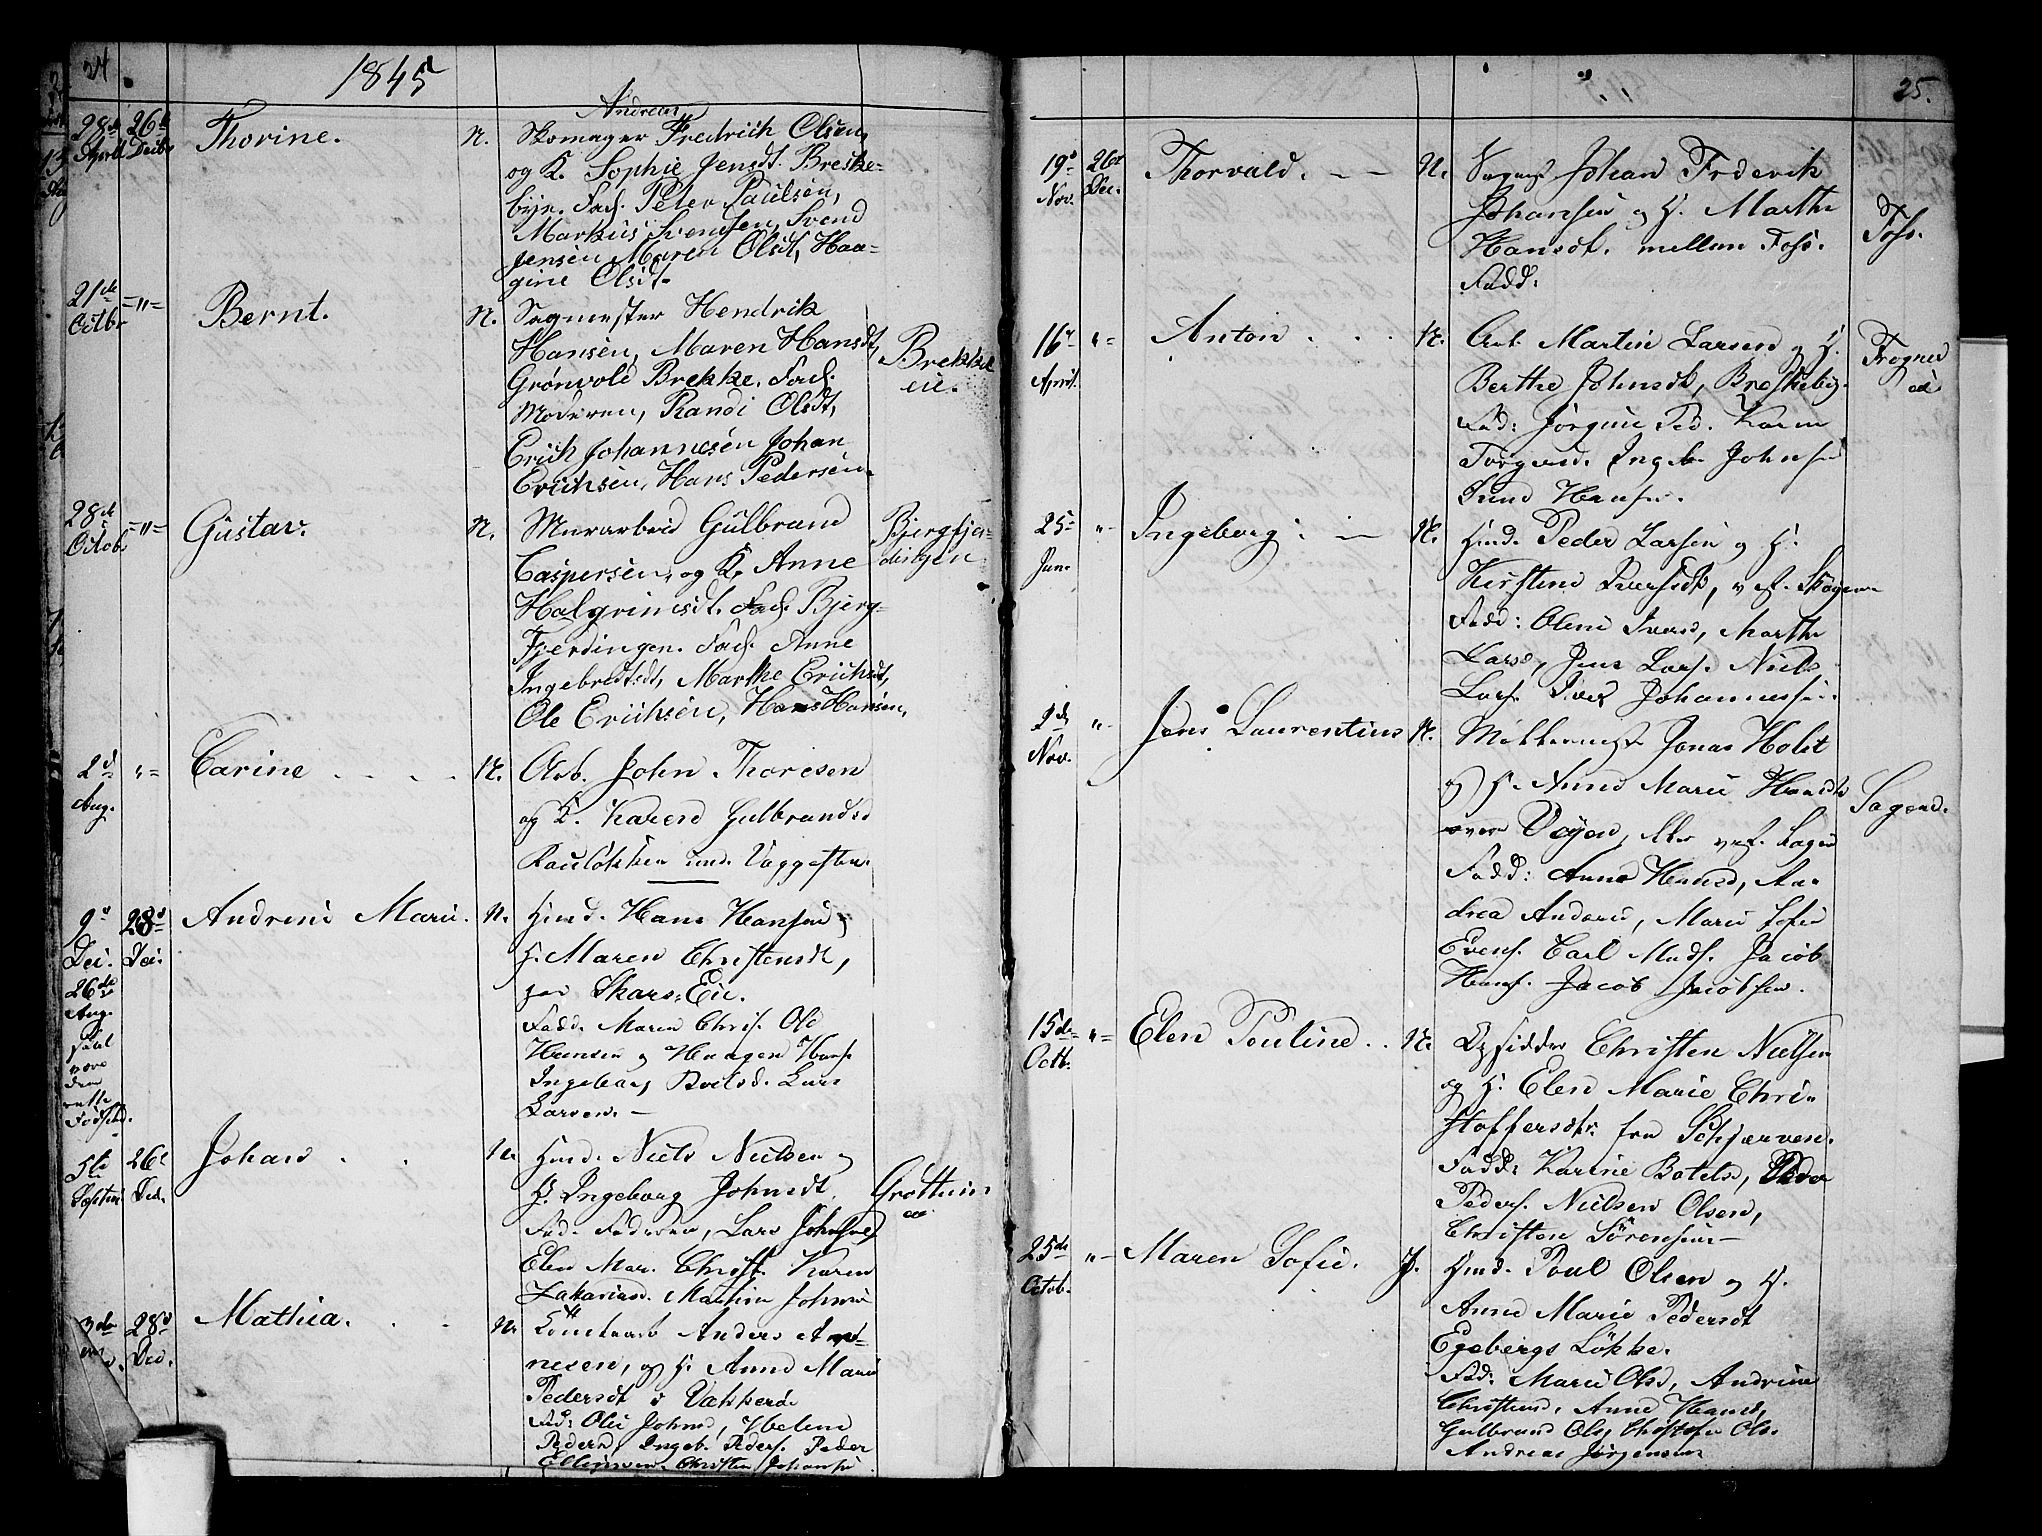 24
1845
28de April
26de Decbr
Thorine.
N.
Andreas
Skomager Fredrich Olsen,
og K. Sophie Jensdt. Breske-
bye. Fad. Peter Paulsen,
Markus Svendsen, Svend
Jensen Maren Olsdt, Haa-
gine Olsdt.
21de Octbr
="=
Bernt.
N.
Sagmester Hendrik
Hansen, Maren Hansdt,
Grønvold Brekke. Fad.
Moderen, Randi Olsdt,
Erich Johannesen Johan
Erichsen, Hans Pedersen.
Brekke
eie.
28de Octob
="=
Gustav.
N.
Murarbeid Gulbrand
Caspersen, og K. Anne
Halgrimsdt. Fad. Bjerg-
Fjerdingen. Fad. Anne
Ingebredtsdt, Marthe Erichsdt,
Ole Erichsen, Hans Hansen,
Bjergfjer-
dingen
2d Aug.
"=
Carine . . . .
N.
Arb. John Thoresen
og K. Karen Gulbrandsd
Rauløkken und. Vaggesten.
9d Dec.
28d Dec.
26de
Aug.
skal
være
den
rette
Fødselsd.
Andrine Marie.
N.
Huusd. Hans Hansen
H. Maren Christensdt,
paa Skars-Eie.
Fadd. Maren Chris. Ole
Hansen og Haagen Hans.
Ingeborg Larsen.
5te Septem
26d Dec.
Johan . .
N.
Huusd. Niels Nielsen og
H. Ingeborg Johnsdt.
Fad. Faderen, Lars Johnsen,
Elen Mar. Christ. Karen
Zakariasd. Martin Johns.
Grøttum
eie
3de
28d Dec.
Mathia. . .
N.
Anders
nesen, og H. Anne Marie
Pedersdt v Vækkerø
Fad: Ole Johnsd, Helene
Pedersd, Ingeb. Peders. Peder
Ellingsen. Christen Johanse
25.
19d Nov.
26d Dec.
Thorvald. - -
N.
Sagm. Johan Frderik
Johansen og H. Marthe
Hansdt. mellem Foss.
Fadd:
Foss.
16d April.
"=
Anton . . .
N.
Arb. Martin Larsen og H.
Berthe Johnsdt, Breskeby.
Fad: Jørgine Ped. Karen
Torgersd. Ingeb. Johnse
Hansen.
Frogner
eie
25d Jun.
"-
Ingeborg . -
N.
Huusd. Peder Larsen og H.
Kirstine Iversdt, v. f. Skøyen
Fadd: Oleni Iversd, Marthe
Larsd, Jens Lars. Niels
Lars. Iver Johannessen.
2d Nov.
"-
Jens Laurentius
N.
Møllermest. Jonas Holst
og H. Anne Marie Hansdt
over Vøyen, eller v. f. Sagen
Fadd: Anne Hansd, An-
drea Andersd, Marie Sofie
Evens. Carl Mads. Jacob
Hans. Jacob Jacobsen.
Sagend.
15de Octb.
"=
Elen Pouline . .
N.
Opsidder Christen Nielsen
og H. Elen Marie Chri-
stoffersdt: fra Schjerven.
Fadd: Karine Botelsd, Peder
Peders. Nielsen Olsen,
Christen Sørensen -
25de Octob.
"-
Maren Sofie.
J.
Huusd. Poul Olsen og H.
Anne Marie Pedersdt
Egebergs Løkke.
Fad: Marie Olsd, Andrine
Christensd, Anne Hansd,
Gulbrand Ols, Christofer Ols.
Andreas Jørgensen